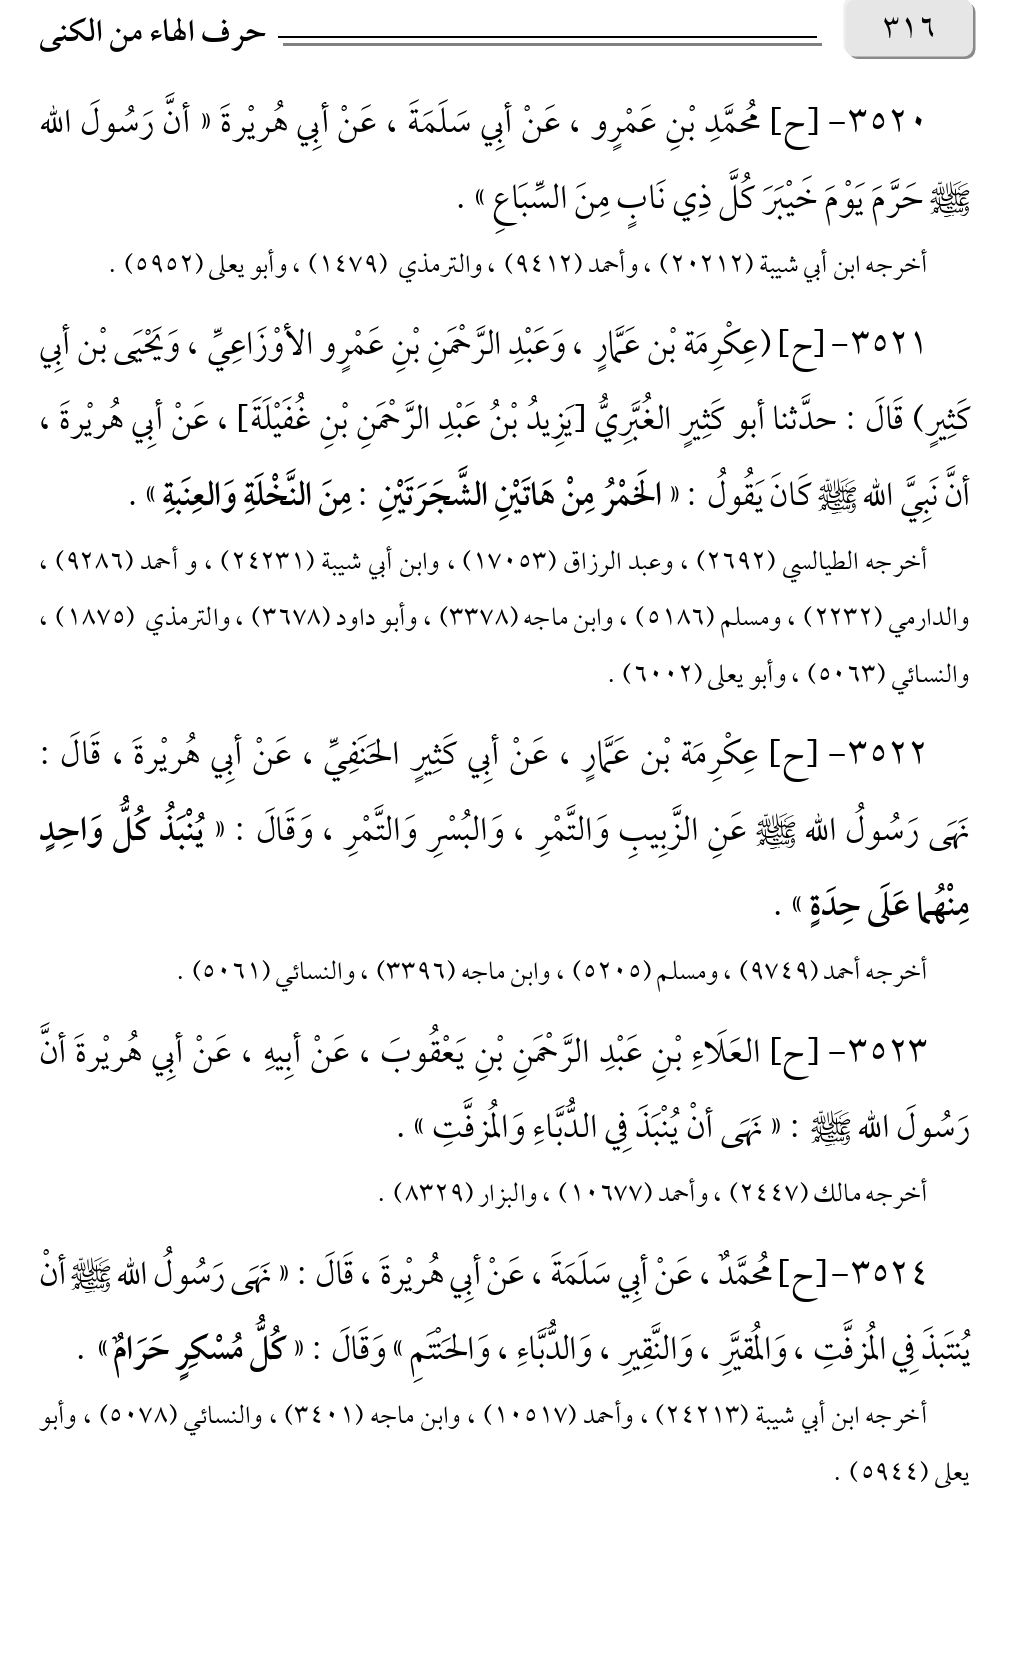 ٣١٦
حرف الهاء من الكنى
٣٥٢٠- [ح] مُحمَّدِ بْنِ عَمْرٍو ، عَنْ أبِي سَلَمَةَ ، عَنْ أبِي هُريْرةَ « أنَّ رَسُولَ الله
ﷺ حَرَّمَ يَوْمَ خَيْبَرَ كُلَّ ذِي نَابٍ مِنَ السِّبَاعِ » .
أخرجه ابن أبي شيبة (٢٠٢١٢) ، وأحمد (٩٤١٢) ، والترمذي (١٤٧٩) ، وأبو يعلى (٥٩٥٢) .
٣٥٢١- [ح] (عِكْرِمَة بْن عَمَّارٍ ، وَعَبْدِ الرَّحْمَنِ بْنِ عَمْرٍو الأوْزَاعِيِّ ، وَيَحْيَى بْن أبِي
كَثِيرٍ) قَالَ : حدَّثنا أبو كَثِيرٍ الغُبَّرِيُّ [يَزِيدُ بْنُ عَبْدِ الرَّحْمَنِ بْنِ غُفَيْلَةَ] ، عَنْ أبِي هُريْرةَ ،
أنَّ نَبِيَّ الله ﷺ كَانَ يَقُولُ : « الخَمْرُ مِنْ هَاتَيْنِ الشَّجَرَتَيْنِ : مِنَ النَّخْلَةِ وَالعِنَبةِ » .
أخرجه الطيالسي (٢٦٩٢) ، وعبد الرزاق (١٧٠٥٣) ، وابن أبي شيبة (٢٤٢٣١) ، و أحمد (٩٢٨٦) ،
والدارمي (٢٢٣٢) ، ومسلم (٥١٨٦) ، وابن ماجه (٣٣٧٨) ، وأبو داود (٣٦٧٨) ، والترمذي (١٨٧٥) ،
والنسائي (٥٠٦٣) ، وأبو يعلى (٦٠٠٢) .
٣٥٢٢- [ح] عِكْرِمَة بْن عَمَّارٍ ، عَنْ أبِي كَثِيرٍ الحَنَفِيِّ ، عَنْ أبِي هُريْرةَ ، قَالَ :
نَهَى رَسُولُ الله ﷺ عَنِ الزَّبِيبِ وَالتَّمْرِ ، وَالبُسْرِ وَالتَّمْرِ ، وَقَالَ : « يُنْبَذُ كُلُّ وَاحِدٍ
مِنْهُما عَلَى حِدَةٍ » .
أخرجه أحمد (٩٧٤٩) ، ومسلم (٥٢٠٥) ، وابن ماجه (٣٣٩٦) ، والنسائي (٥٠٦١) .
٣٥٢٣- [ح] العَلَاءِ بْنِ عَبْدِ الرَّحْمَنِ بْنِ يَعْقُوبَ ، عَنْ أبِيهِ ، عَنْ أبِي هُريْرةَ أنَّ
رَسُولَ الله ﷺ : « نَهَى أنْ يُنْبَذَ فِي الدُّبَّاءِ وَالمُزفَّتِ » .
أخرجه مالك (٢٤٤٧) ، وأحمد (١٠٦٧٧) ، والبزار (٨٣٢٩) .
٣٥٢٤- [ح] مُحمَّدٌ ، عَنْ أبِي سَلَمَةَ ، عَنْ أبِي هُريْرةَ ، قَالَ : « نَهَى رَسُولُ الله ﷺ أنْ
يُنتَبذَ فِي المُزفَّتِ ، وَالمُقيَّرِ ، وَالنَّقِيرِ ، وَالدُّبَّاءِ ، وَالحَنْتَمِ » وَقَالَ : « كُلُّ مُسْكِرٍ حَرَامٌ » .
أخرجه ابن أبي شيبة (٢٤٢١٣) ، وأحمد (١٠٥١٧) ، وابن ماجه (٣٤٠١) ، والنسائي (٥٠٧٨) ، وأبو
يعلى (٥٩٤٤) .